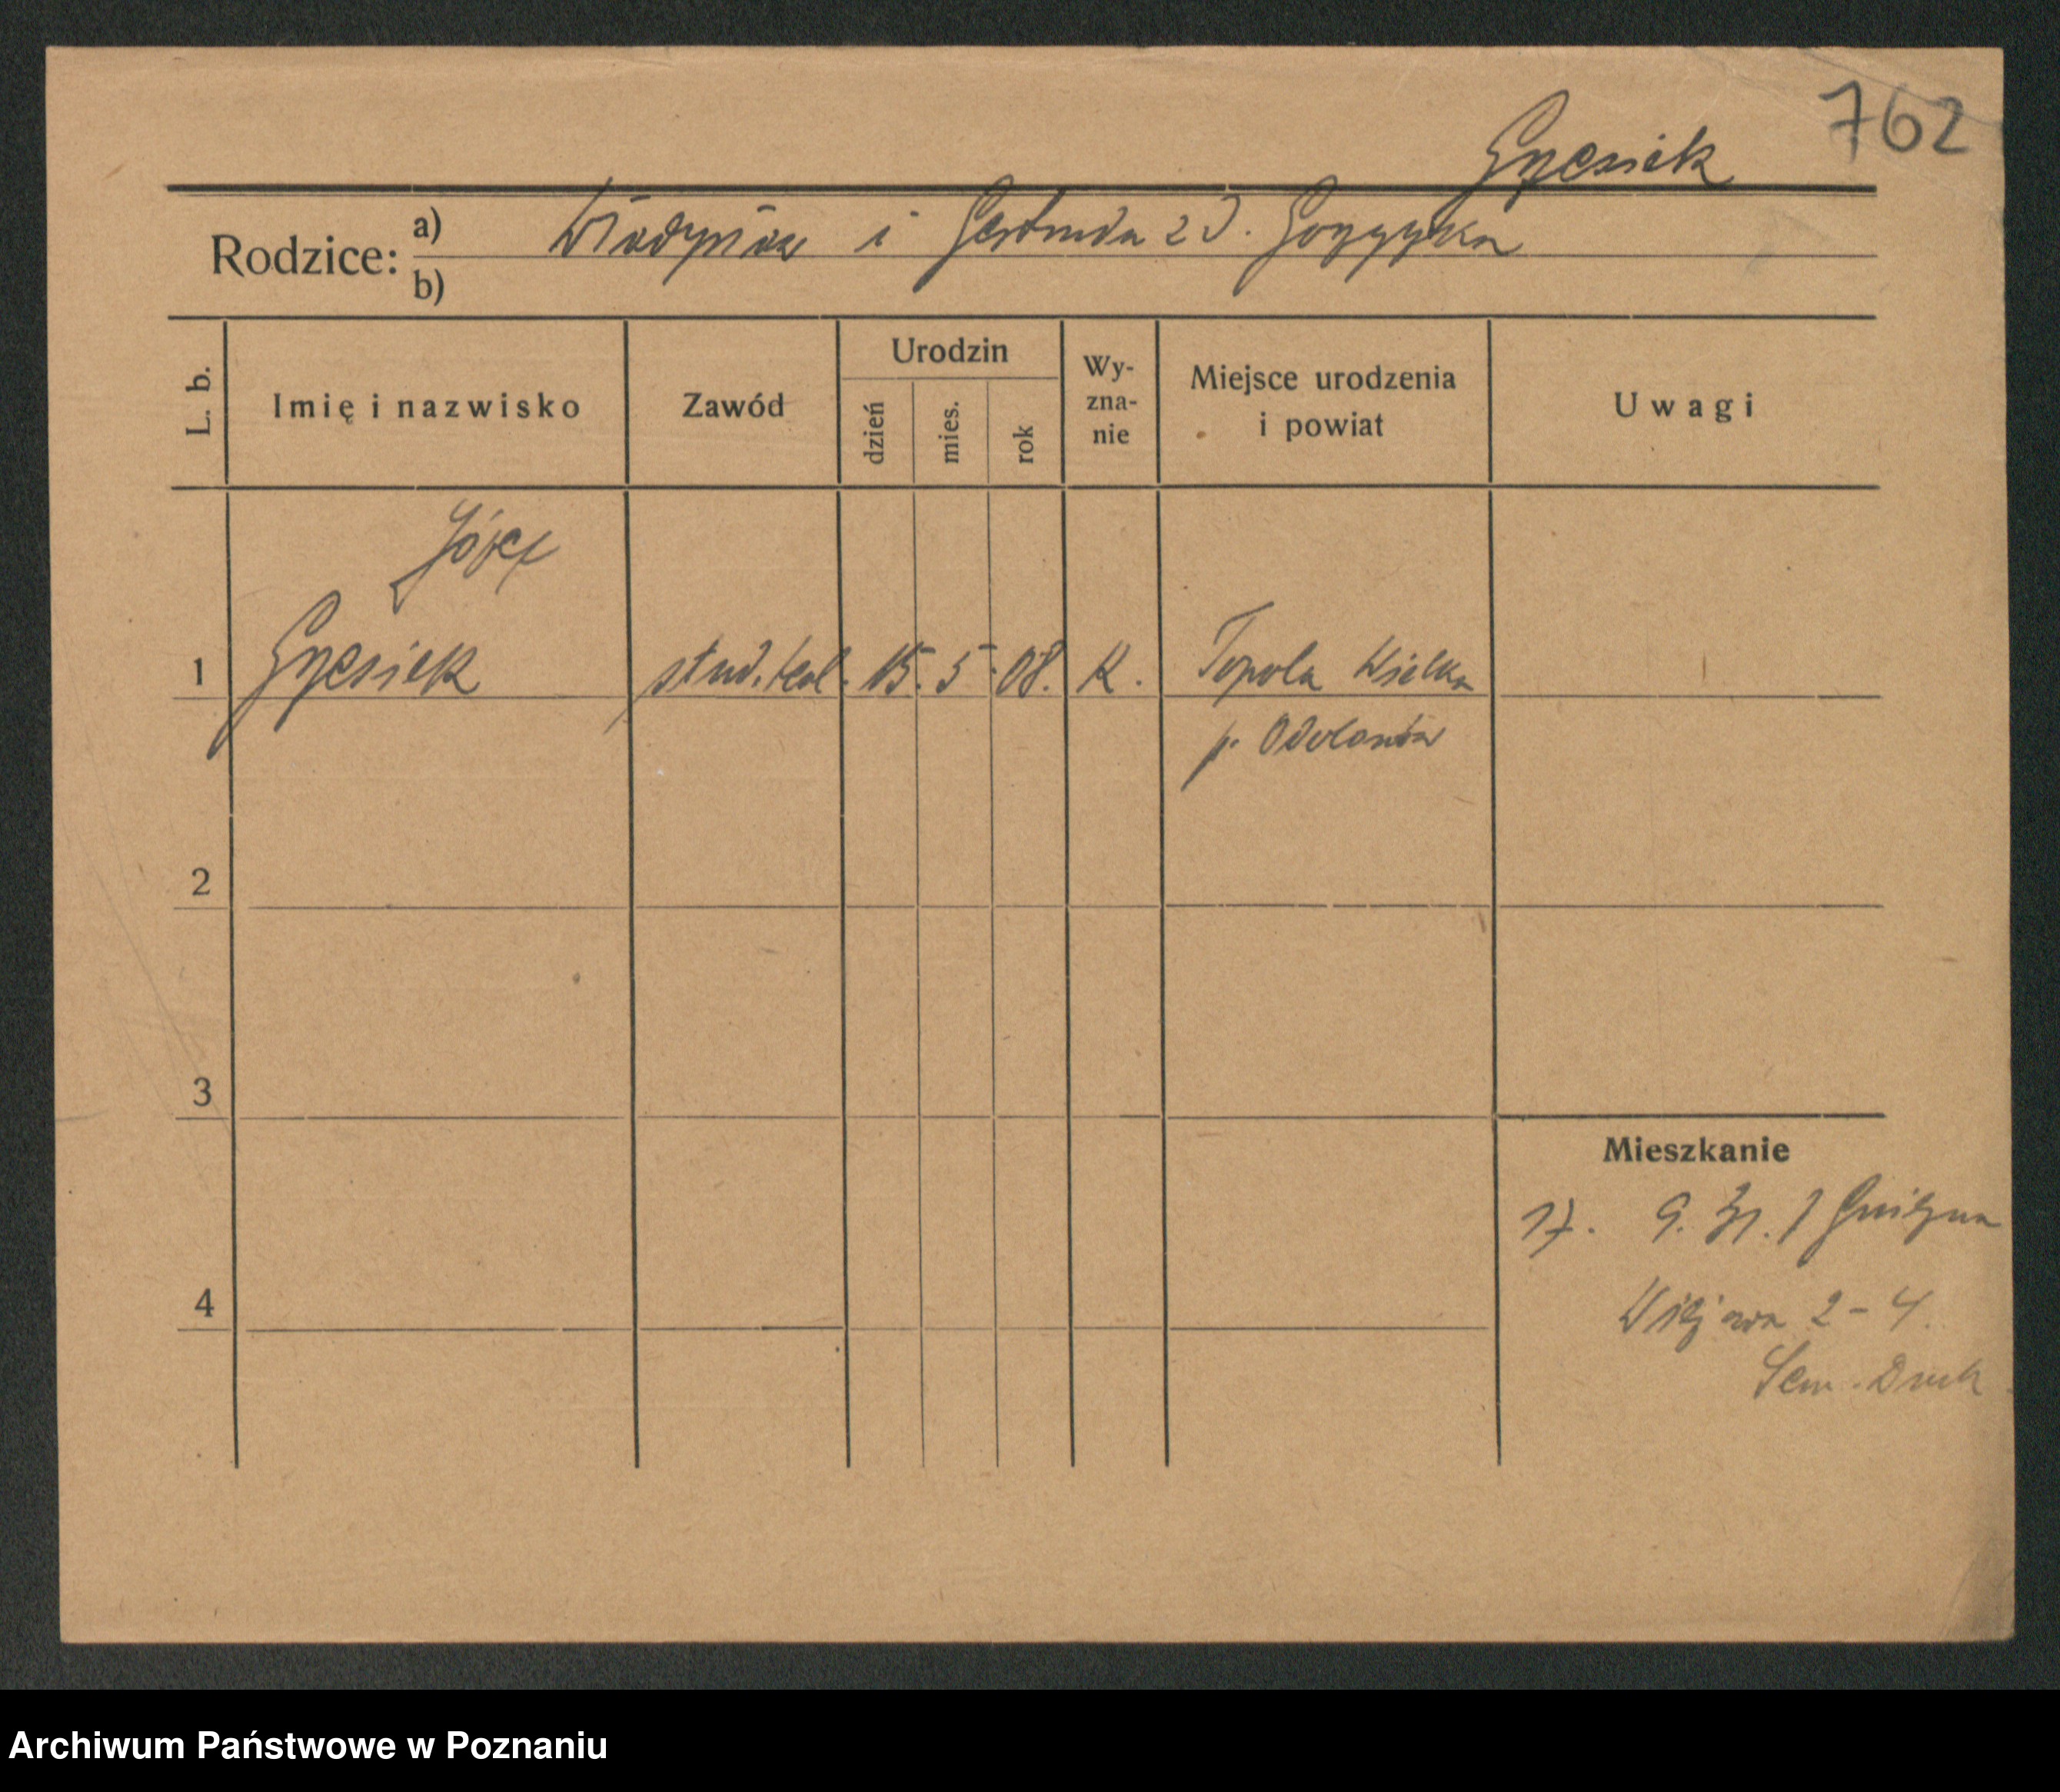 762
Grzesiek
Rodzice: a) Władysław i Gertruda z d.
b)
L. b.
Imię i nazwisko
Zawód
Urodzin
dzień
mies.
rok
Wy-
zna-
nie
Miejsce urodzenia
i powiat
Uwagi
Józef
1 Grzesiek stud. teol. 15. 5. 08. K. Topola Wielka
p. Odolanów
2
3
Mieszkanie
17. 9. 31. Gniezno
4
2-4
Sem. Duch.
Archiwum Państwowe w Poznaniu